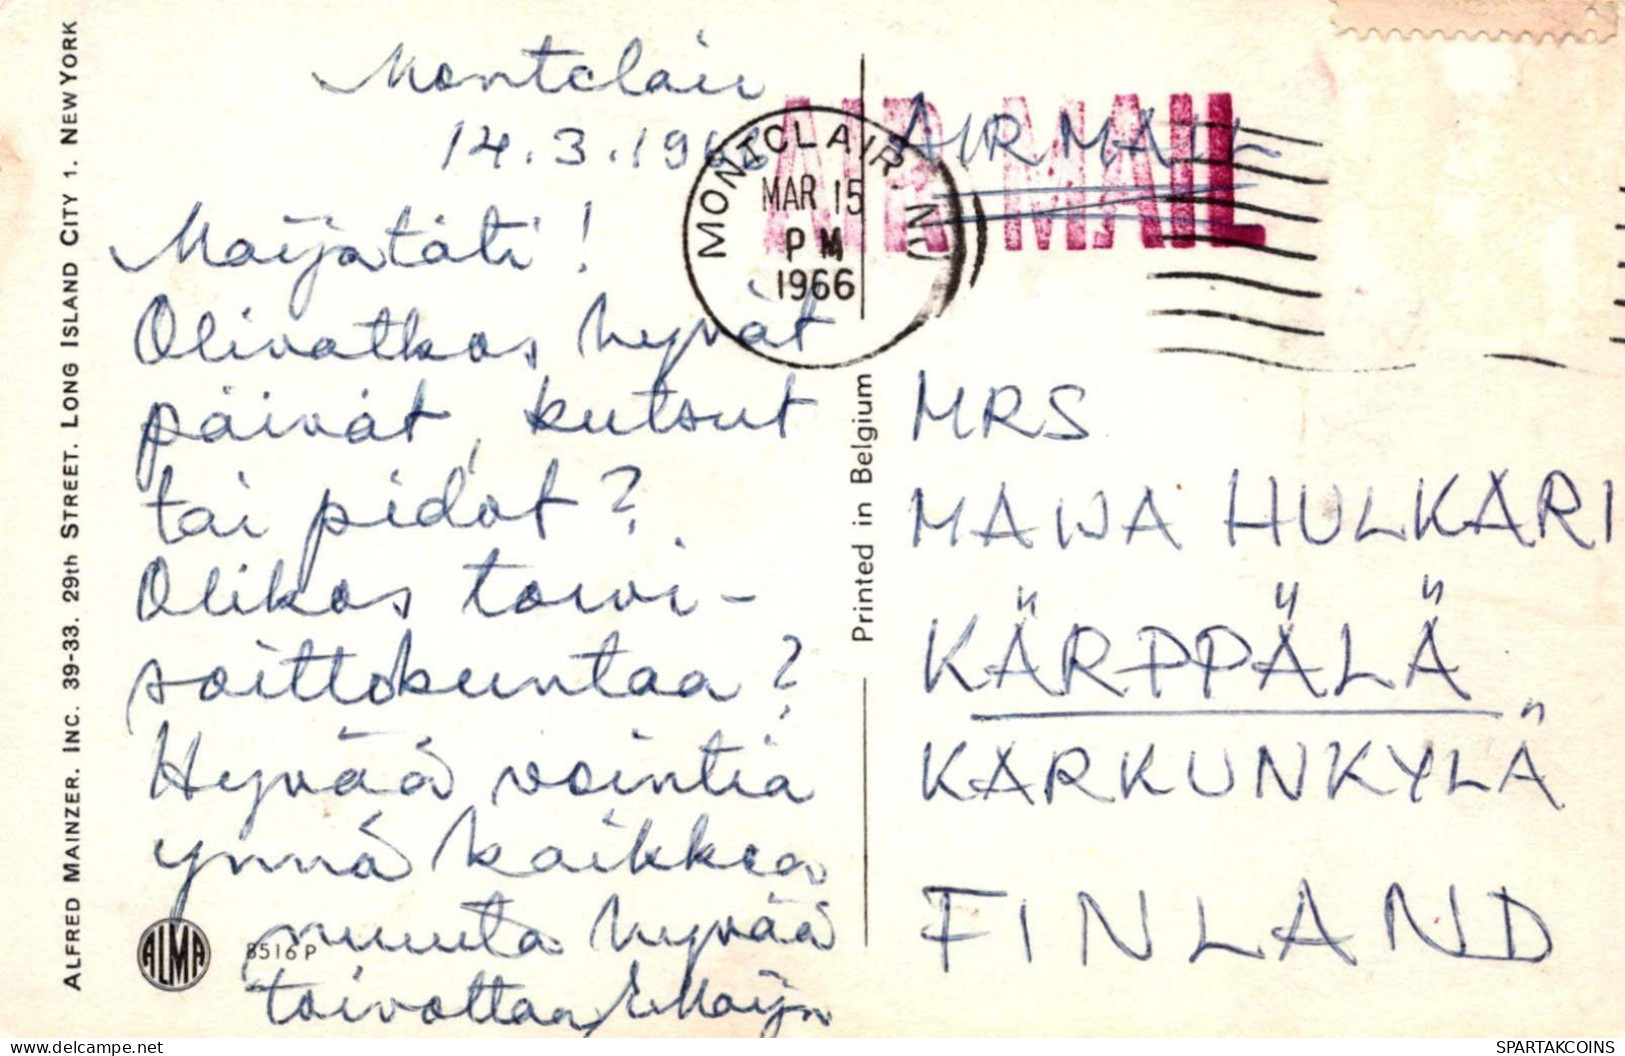 ALFRED MAINZER. INC. 39-33. 29th STREET. LONG ISLAND CITY 1. NEW YORK
Montclair
14.3.1966
Maijatäti!
Olivatkos hyvät
päivät, kutsut
tai pidot?
Olikos torvi-
soittokuntaa?
Hyvää vointia
ynnä kaikkea
muuta hyvää
toivottaa
ALMA
8516 P
Printed in Belgium
MONTCLAIR, NJ
MAR 15
PM
1966
AIR MAIL
AIR MAIL
MRS
MAIJA HULKARI
KÄRPPÄLÄ
KARKUNKYLÄ
FINLAND
delcampe.net
SPARTAKCOINS